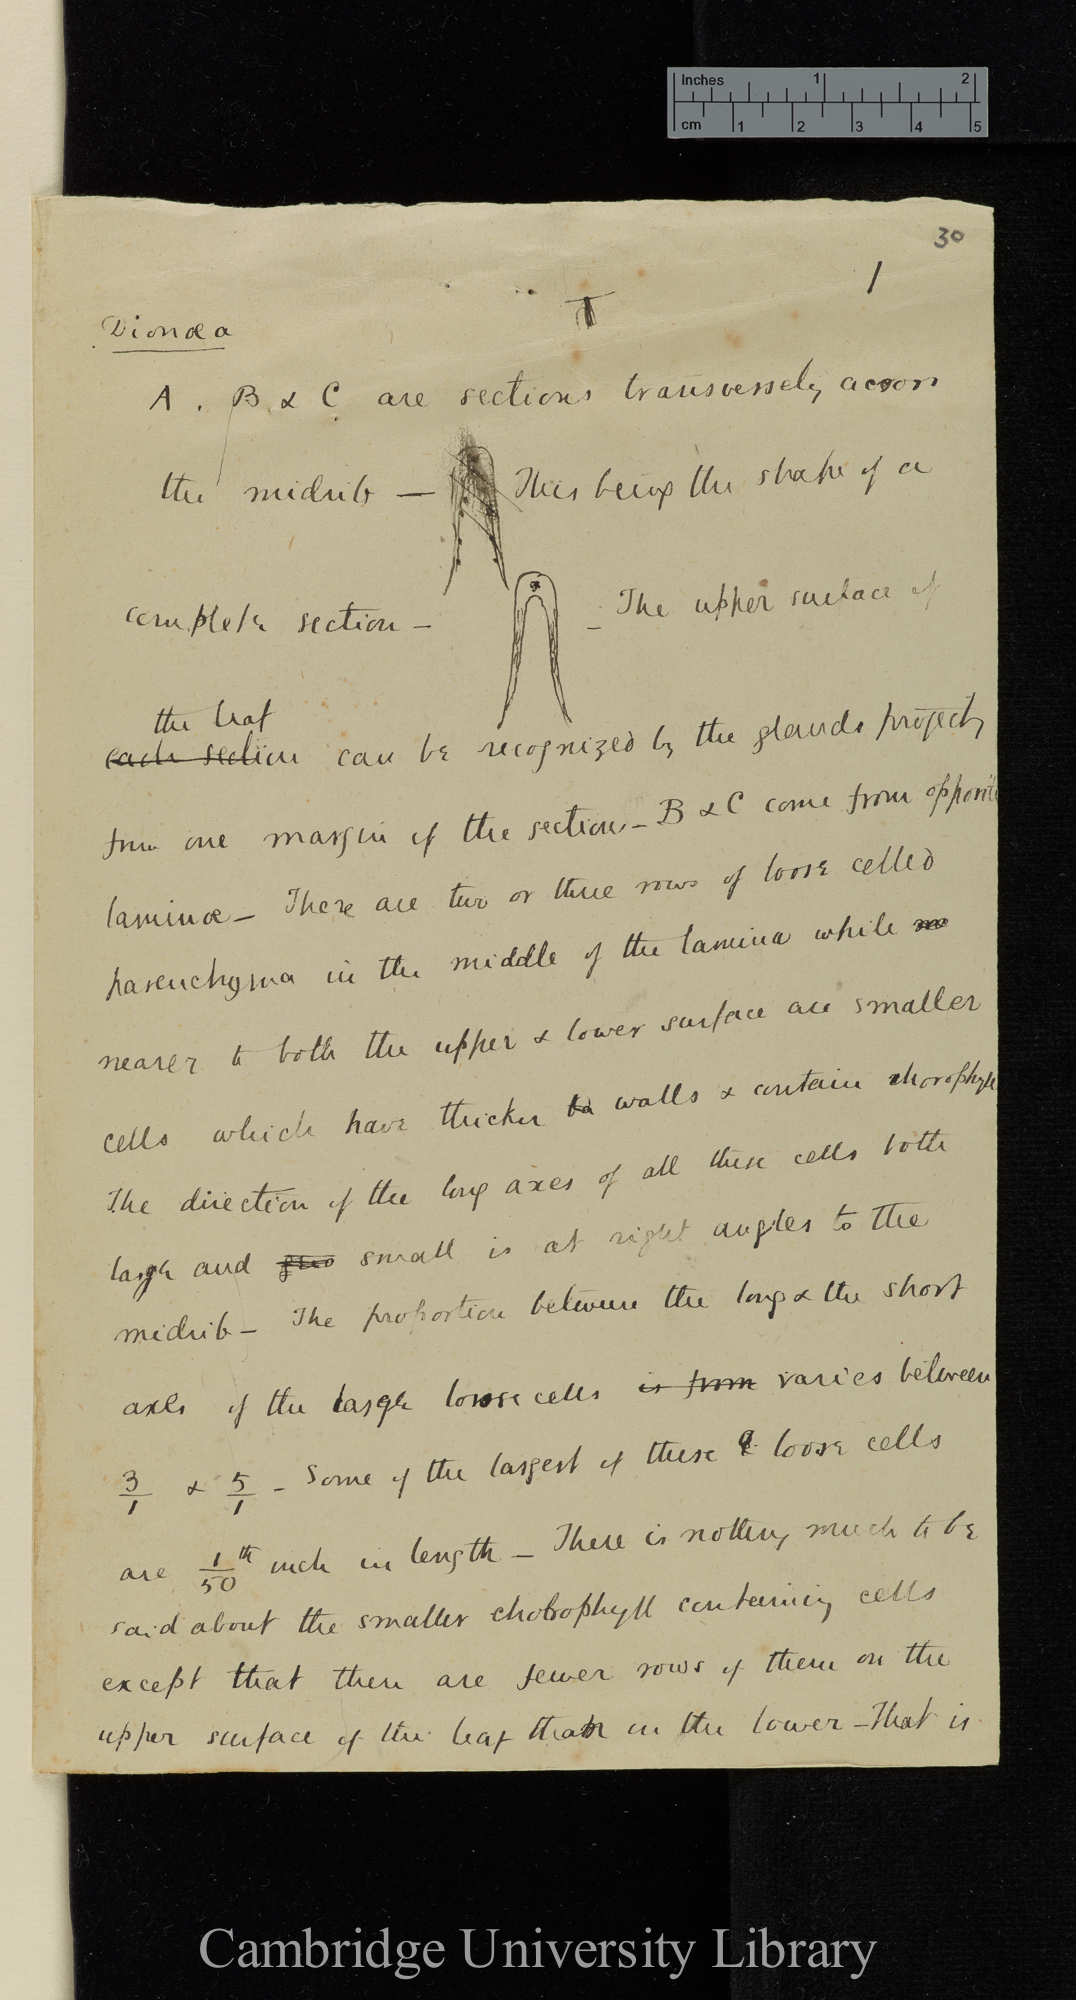 Inches 1 2
cm 1 2 3 4 5
30
1
Dionæa
A. B & C are sections transversely across
the midrib — This being the shape of a
complete section — – The upper surface of
the leaf
each section can be recognized by the glands projectg
from one margin of the section – B & C come from opposite
laminæ – There are two or three rows of loose celled
parenchyma in the middle of the lamina while
nearer to both the upper & lower surface are smaller
cells which have thicker walls & contain chorophyll
The direction of the long axes of all these cells both
large and small is at right angles to the
midrib – The proportion between the long & the short
axes of the large loose cells is from varies between
3/1 & 5/1 – Some of the largest of these loose cells
are 1/50th inch in length – There is nothing much to be
said about the smaller chorophyll containing cells
except that there are fewer rows of them on the
upper surface of the leaf than on the lower – That is
Cambridge University Library